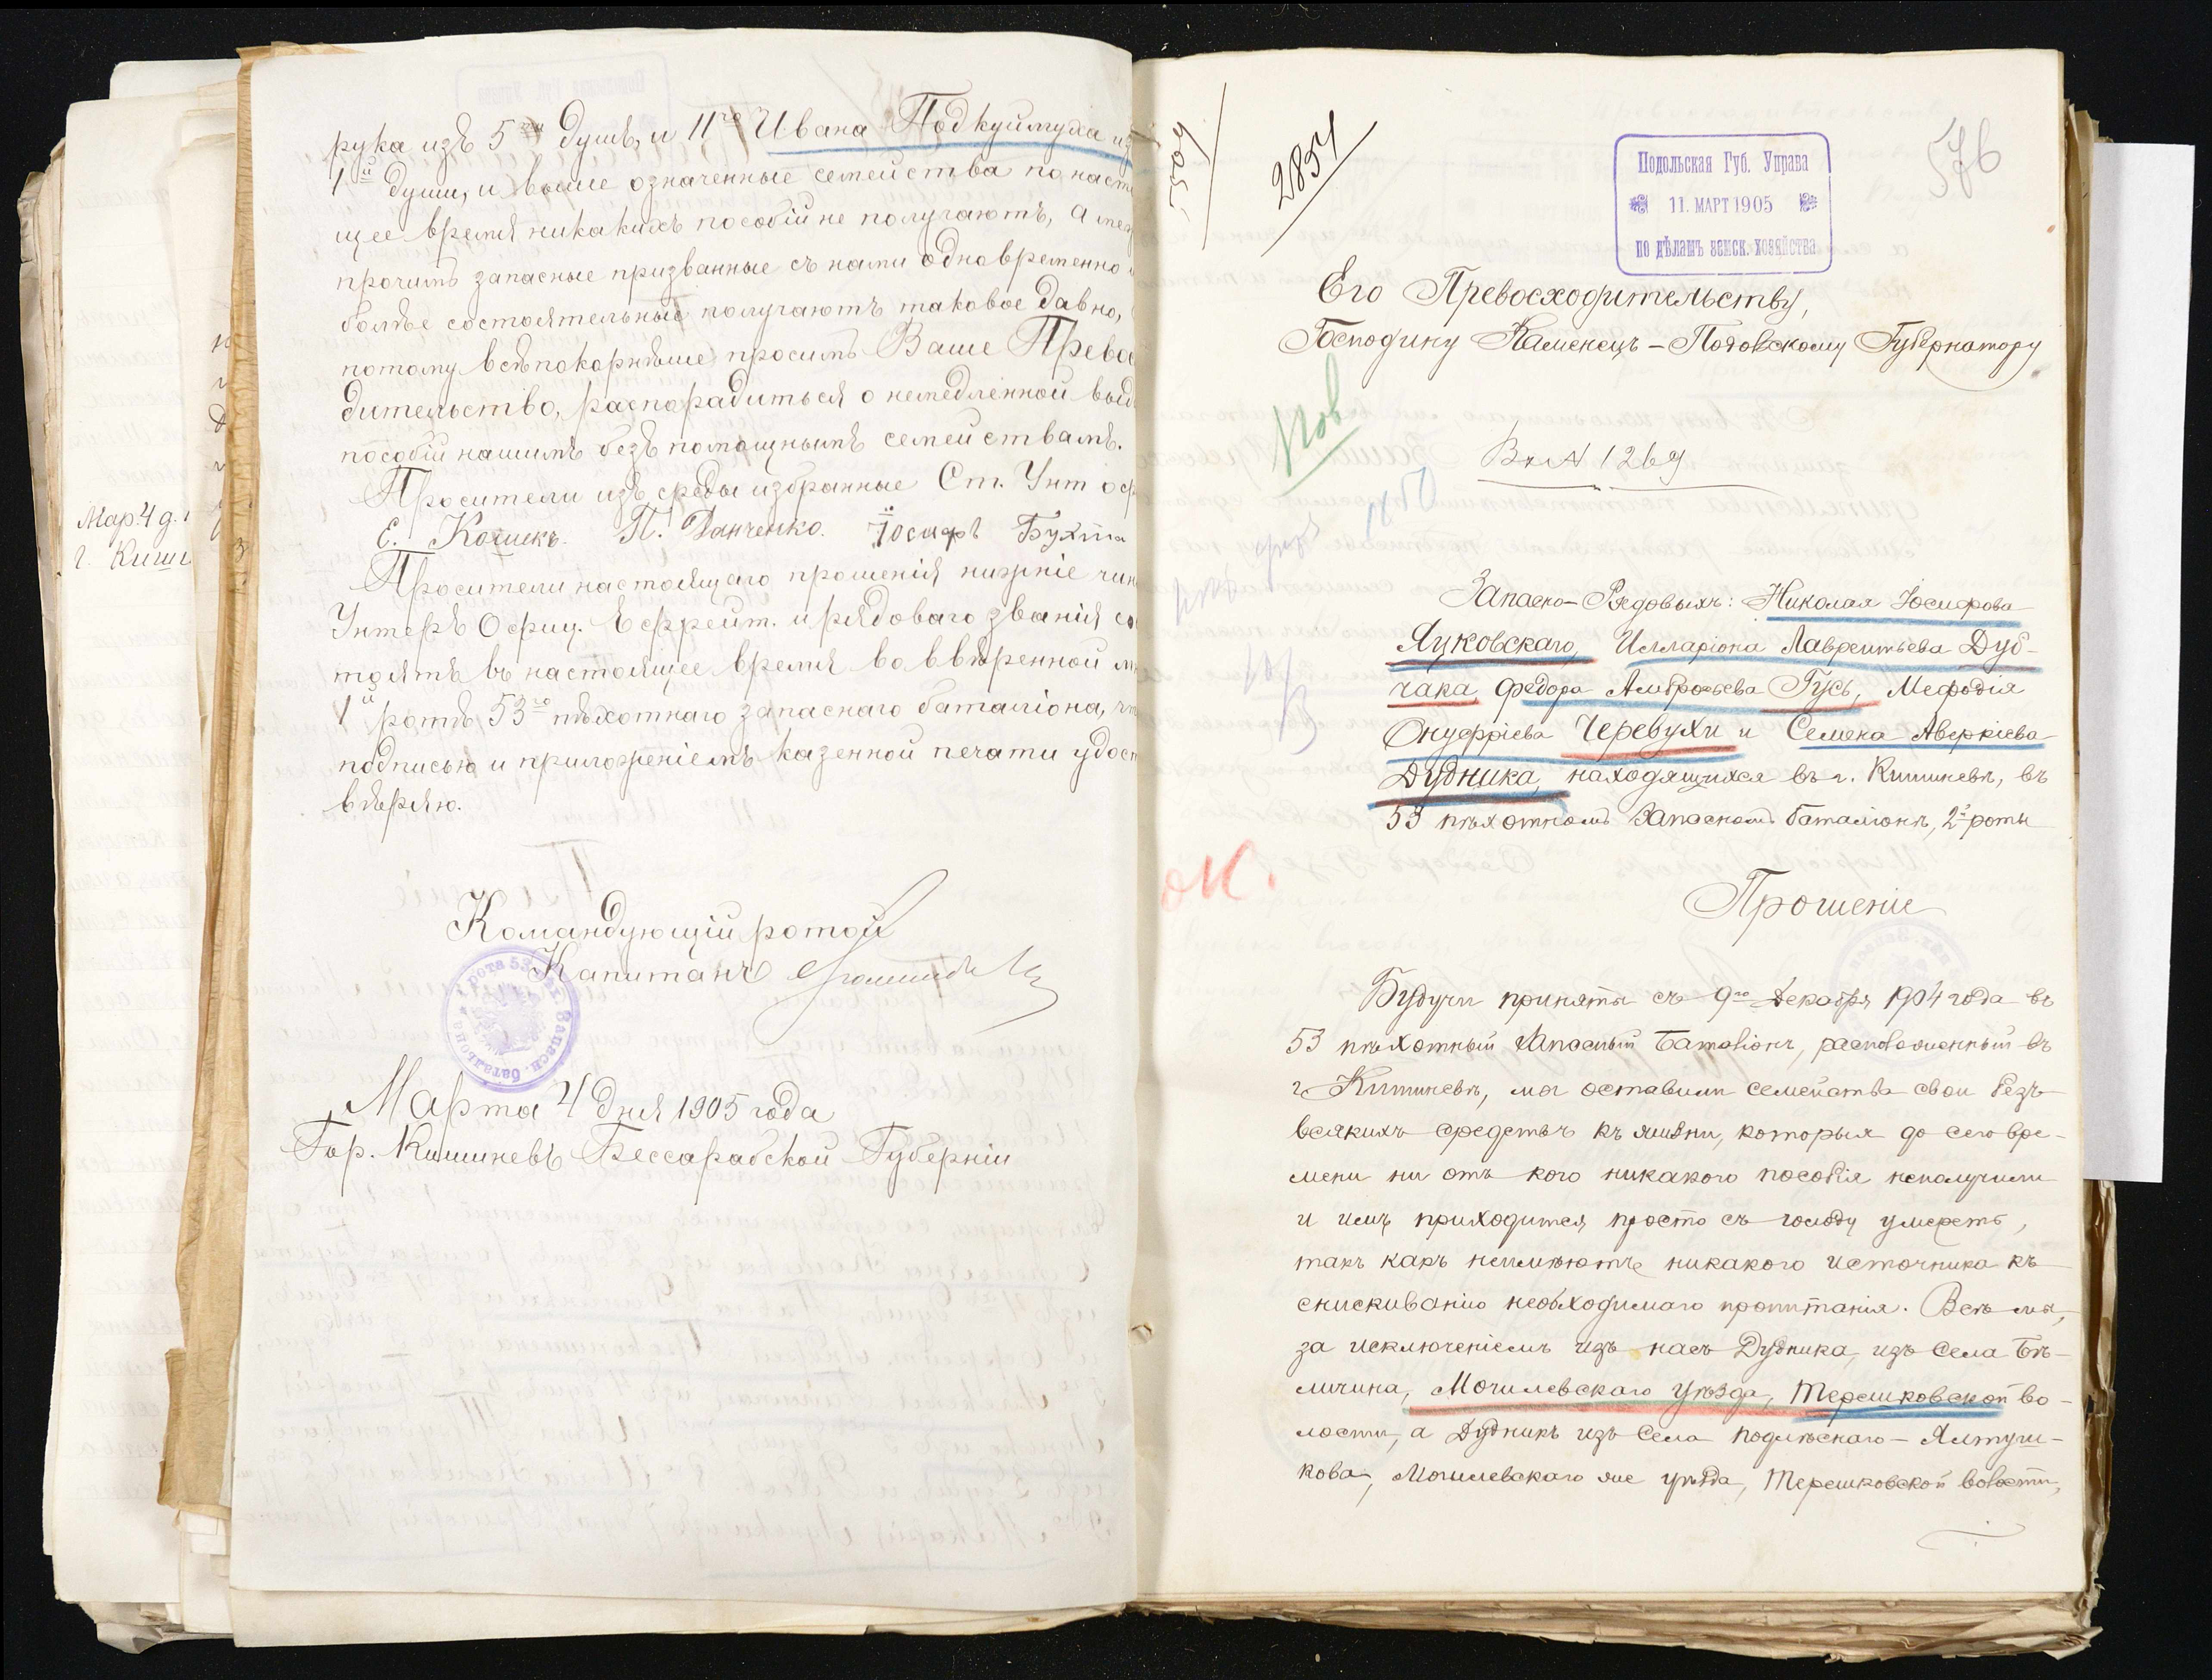 рука изъ 5ти душъ, и 11го Ивана Подкуймуха из
1й души, и выше означенные семейства по насто
щее время никакихъ пособій не получаютъ, а меж
прочимъ запасные призванные съ нами одновременно
болѣе состоятельные получаютъ таковое давно,
потому всѣпокорнѣше просимъ Ваше Прево
дительство, распорадиться о немедленной выд
пособій нашимъ безъ помощнымъ семействамъ.
Просители изъ среды избранные Ст. Унт оф
Е. Кошекъ. П. Данченко. Іосифъ Бухта
Просители настоящаго прошенія нижніе чин
Унтеръ Офиц. Ефрейт. и рядоваго званія со
тоятъ въ настоящее время во ввѣренной мн
1й ротѣ 53го пѣхотнаго запаснаго баталіона, чт
подписью и приложеніемъ казенной печати удост
вѣряю.
Командующій ротой
Капитанъ
рота 53 запасн. батальона
Марта 4 дня 1905 года
Гор. Кишиневъ Бессарабской Губерніи
Мар. 4 д.
г. Киши
2854
576
Подольская Губ. Управа
11. МАРТ 1905
по дѣламъ земск. хозяйства
Его Превосходительству,
Господину Каменецъ-Подольскому Губернатору
Вх № 1269
Запасно-Рядовыхъ: Николая Іосифова
Луковскаго, Илларіона Лаврентьева Дуб-
чака, Федора Амбросьева Гусь, Мефодія
Онуфріева Черевухи и Семена Аверкіева
Дудника, находящихся въ г. Кишиневѣ, въ
53 пѣхотномъ Запасномъ баталіонѣ, 2й роты
ок.
Прошеніе
Будучи приняты съ 9го Декабря 1904 года въ
53 пѣхотный Запасный Баталіонъ, расположенный въ
г. Кишиневѣ, мы оставили семейства свои безъ
всякихъ средствъ къ жизни, которыя до сего вре-
мени ни отъ кого никакого пособія неполучили
и имъ приходится просто съ голоду умереть,
такъ какъ неимѣютъ никакого источника къ
снискиванію необходимаго пропитанія. Всѣ мы,
за исключеніемъ изъ насъ Дудника, изъ села Бѣ-
личина, Могилевскаго уѣзда, Терешковской во-
лости, а Дудникъ изъ села Подлѣснаго-Ялтуш-
кова, Могилевскаго же уѣзда, Терешковской волости,